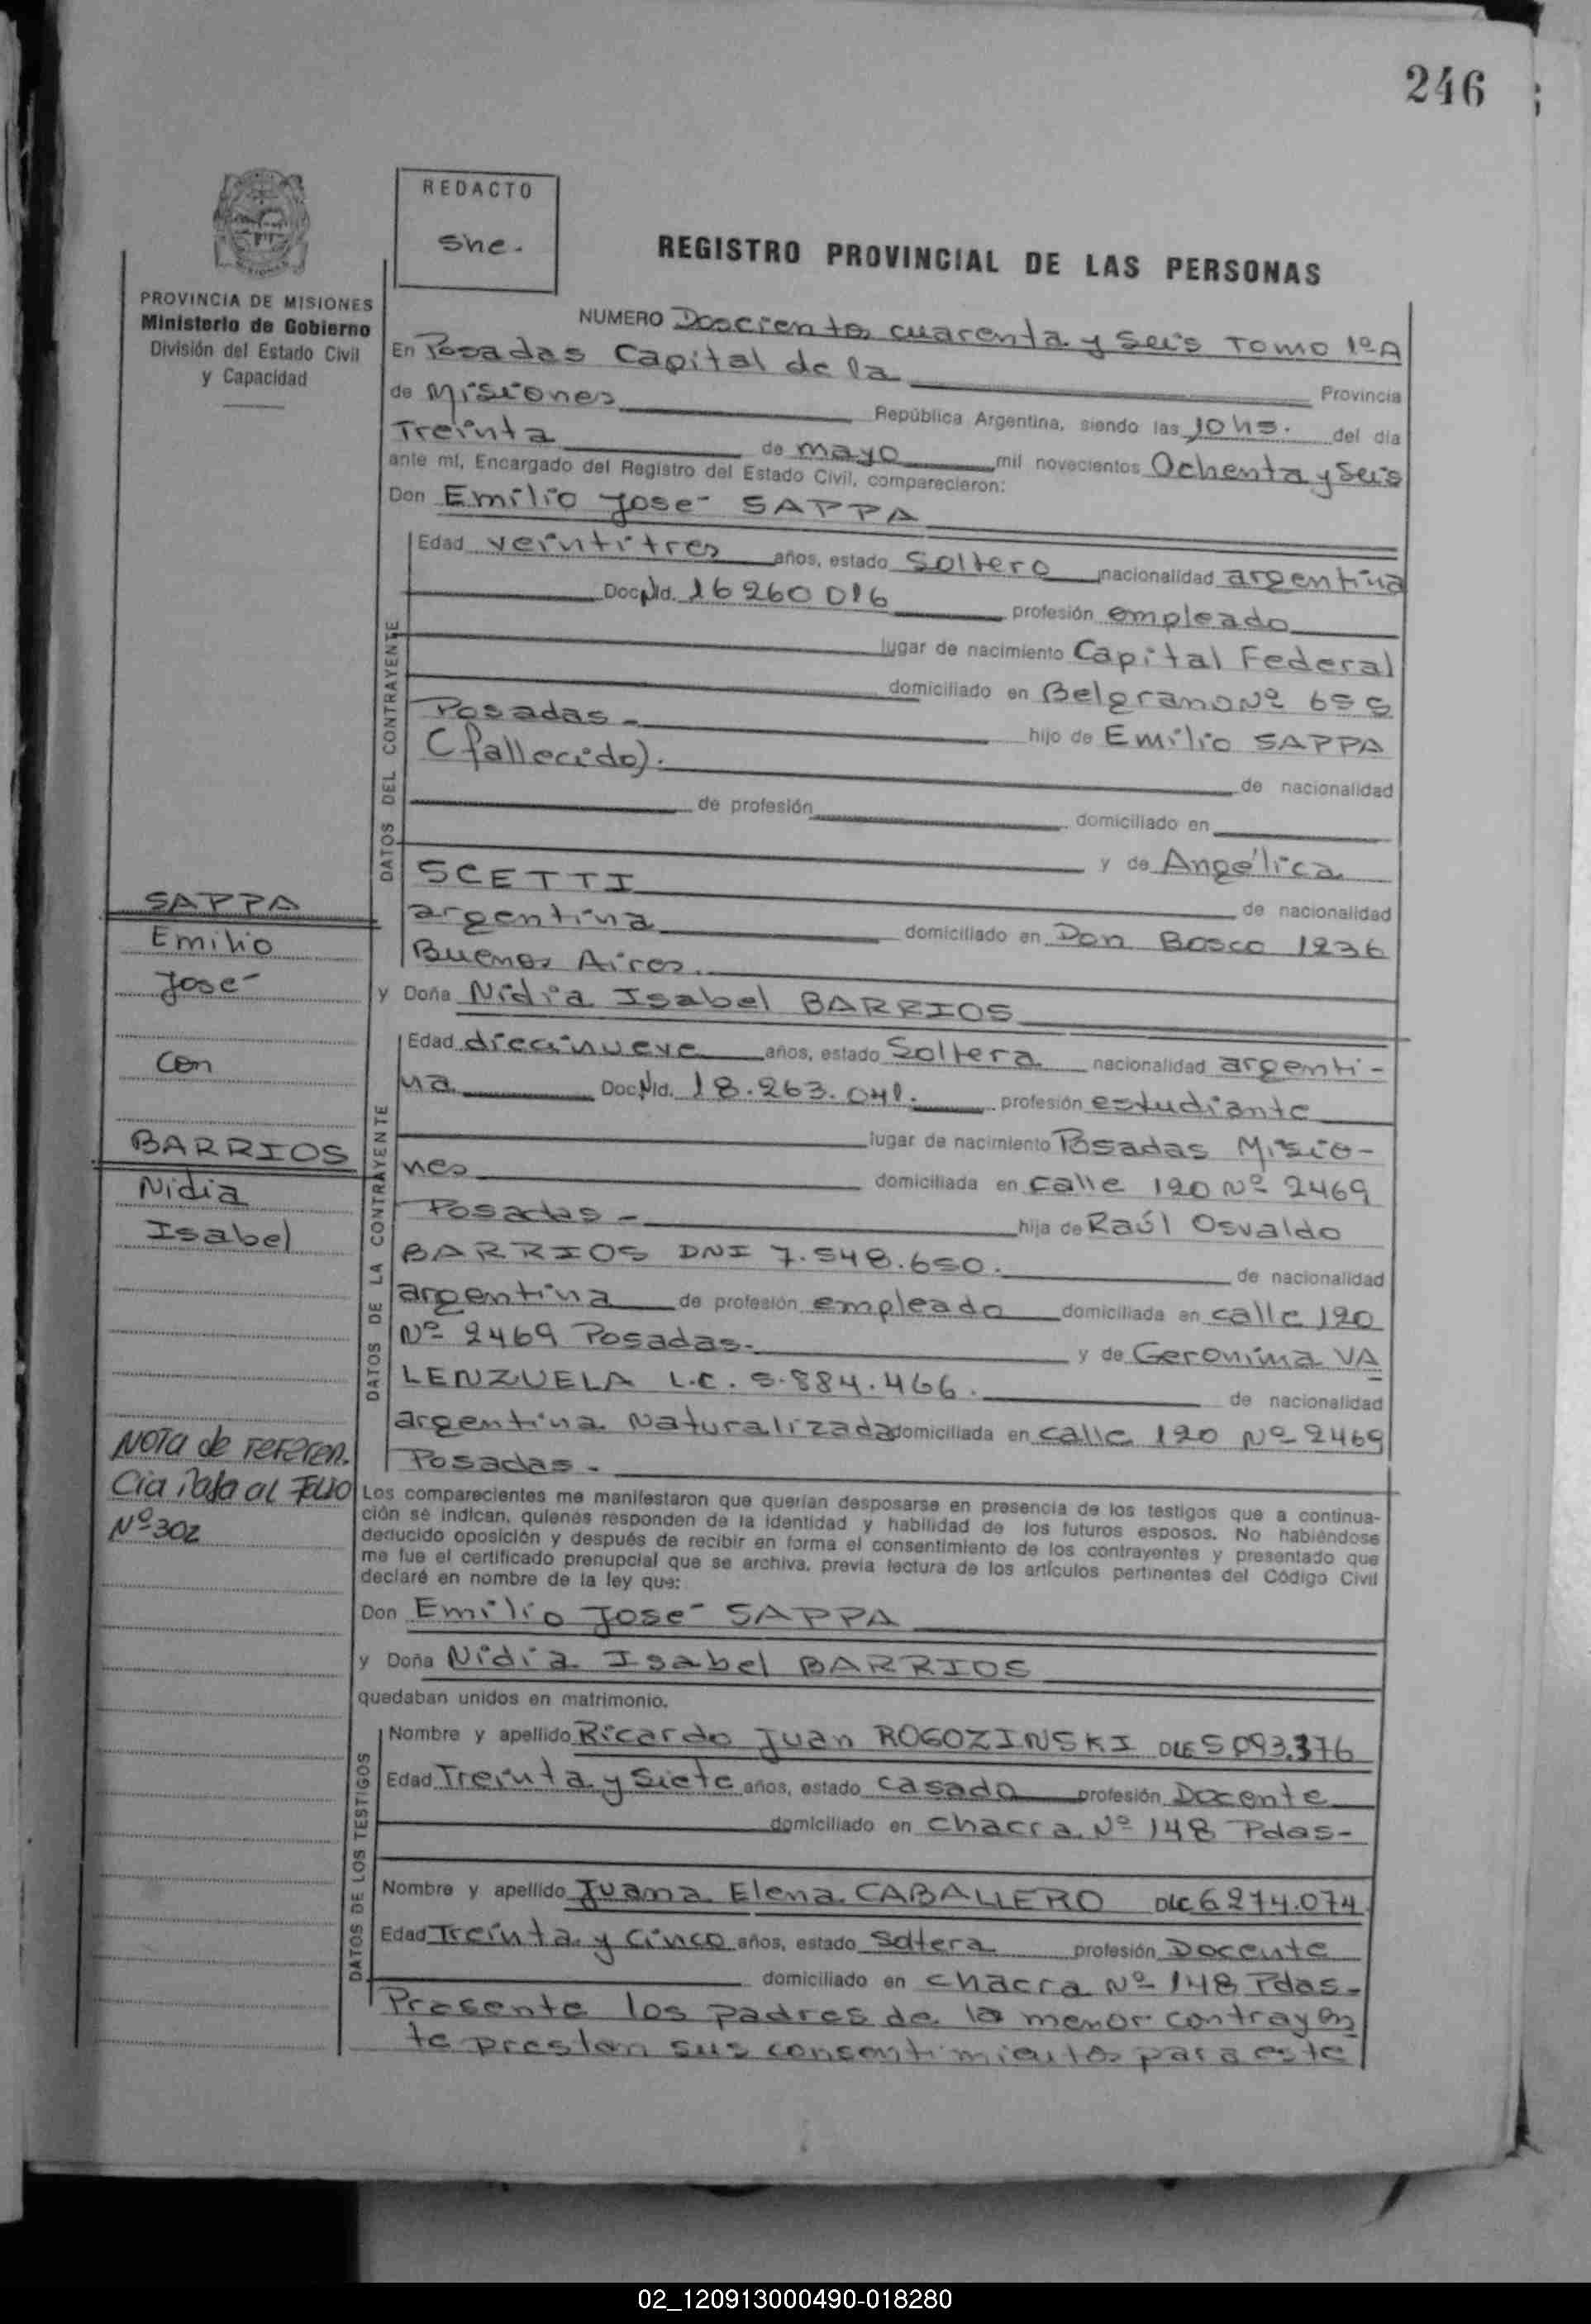 246
REDACTO
She.
REGISTRO PROVINCIAL DE LAS PERSONAS
PROVINCIA DE MISIONES
Ministerio de Gobierno
División del Estado Civil
y Capacidad
NUMERO Doscientos cuarenta y Seis Tomo 1º A
En Posadas Capital de la Provincia
de Misiones República Argentina, siendo las 10 hs. del día
Treinta de mayo mil novecientos Ochenta y Seis
ante mí, Encargado del Registro del Estado Civil, comparecieron:
Don Emilio José SAPPA
DATOS DEL CONTRAYENTE
Edad veintitres años, estado Soltero nacionalidad argentina
Doc. Nid. 16260016 profesión empleado
lugar de nacimiento Capital Federal
domiciliado en Belgrano Nº 655
Posadas - hijo de Emilio SAPPA
(fallecido). de nacionalidad
de profesión domiciliado en
y de Angélica
SCETTI de nacionalidad
argentina domiciliado en Don Bosco 1236
Buenos Aires.
SAPPA
Emilio
José
con
BARRIOS
Nidia
Isabel
y Doña Nidia Isabel BARRIOS
DATOS DE LA CONTRAYENTE
Edad diecinueve años, estado Soltera nacionalidad argenti-
na Doc. Nid. 18.263.041. profesión estudiante
lugar de nacimiento Posadas Misio-
nes domiciliada en calle 120 Nº 2469
Posadas - hija de Raúl Osvaldo
BARRIOS DNI 7.548.650. de nacionalidad
argentina de profesión empleado domiciliada en calle 120
Nº 2469 Posadas- y de Geronima VA
LENZUELA L.C. 5.884.466. de nacionalidad
argentina Naturalizada domiciliada en calle 120 Nº 2469
Posadas -
NOTA de referen.
Cia Pasa al Folio
Nº 302
Los comparecientes me manifestaron que querían desposarse en presencia de los testigos que a continua-
ción se indican, quienes responden de la identidad y habilidad de los futuros esposos. No habiéndose
deducido oposición y después de recibir en forma el consentimiento de los contrayentes y presentado que
me fue el certificado prenupcial que se archiva, previa lectura de los artículos pertinentes del Código Civil
declaré en nombre de la ley que:
Don Emilio José SAPPA
y Doña Nidia Isabel BARRIOS
quedaban unidos en matrimonio.
DATOS DE LOS TESTIGOS
Nombre y apellido Ricardo Juan ROGOZINSKI DLE 5093.376
Edad Treinta y Siete años, estado casado profesión Docente
domiciliado en chacra Nº 148 Pdas-
Nombre y apellido Juana Elena CABALLERO DLC 6.274.074
Edad Treinta y Cinco años, estado Soltera profesión Docente
domiciliado en chacra Nº 148 Pdas-
Presente los padres de la menor contrayen
te prestan sus consentimientos para este
02_120913000490-018280